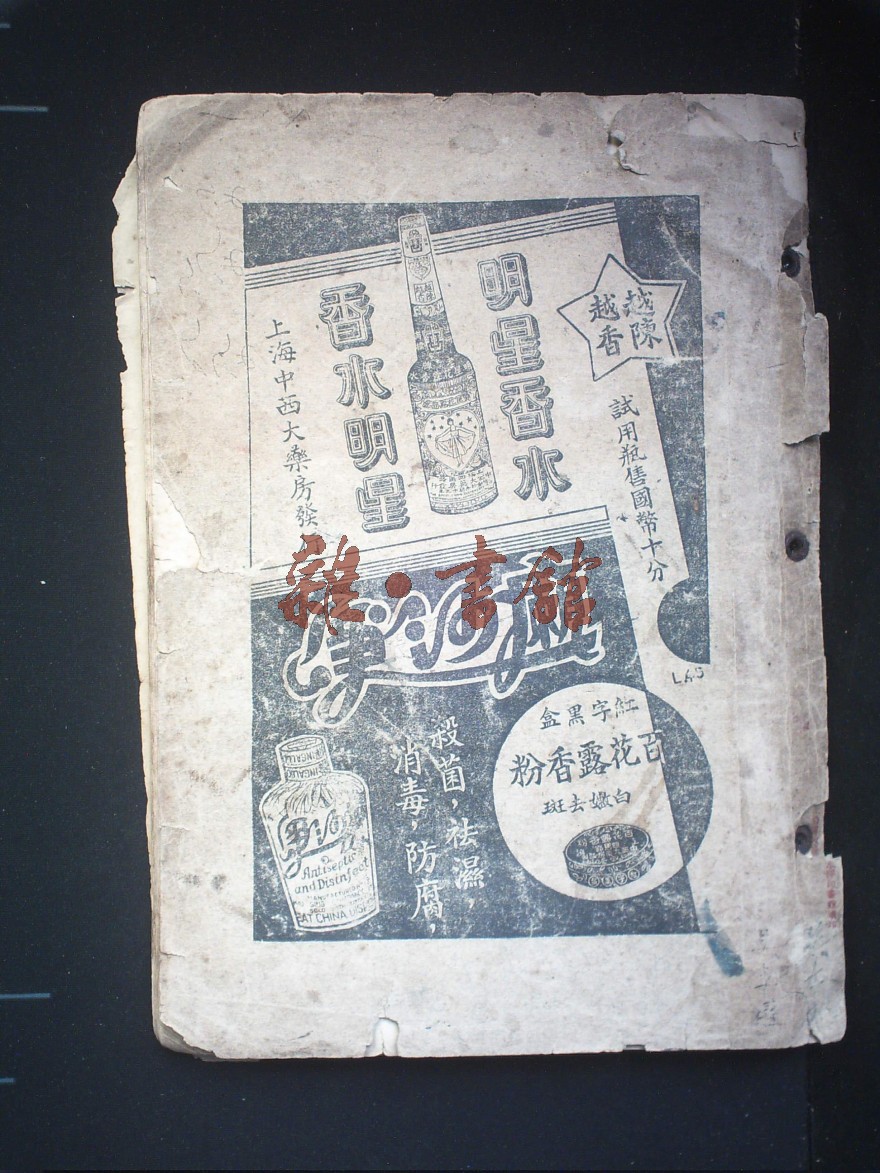 越陳
越香
明星香水
香水明星
試用瓶售國幣十分
上海中西大藥房發
雜·書館
殺菌，祛濕，
消毒，防腐，
紅字黑盒
百花露香粉
白嫩去斑
LAS
Antiseptic
and Disinfect